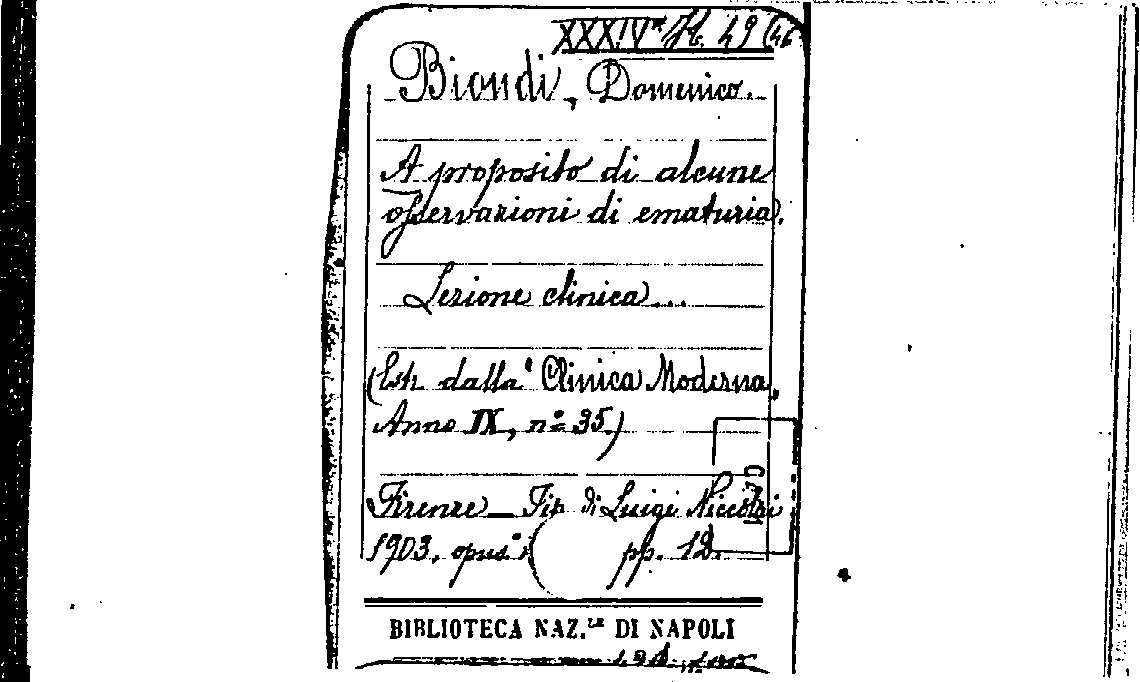 XXXIV H. 49 (46
Biondi, Domenico.
A proposito di alcune
osservazioni di ematuria.
Lezione clinica...
(Estr. dalla "Clinica Moderna,
Anno IX, n° 35.)
Firenze — Tip. di Luigi Niccolai
1903. opusc° pp. 12.
BIBLIOTECA NAZ.LE DI NAPOLI